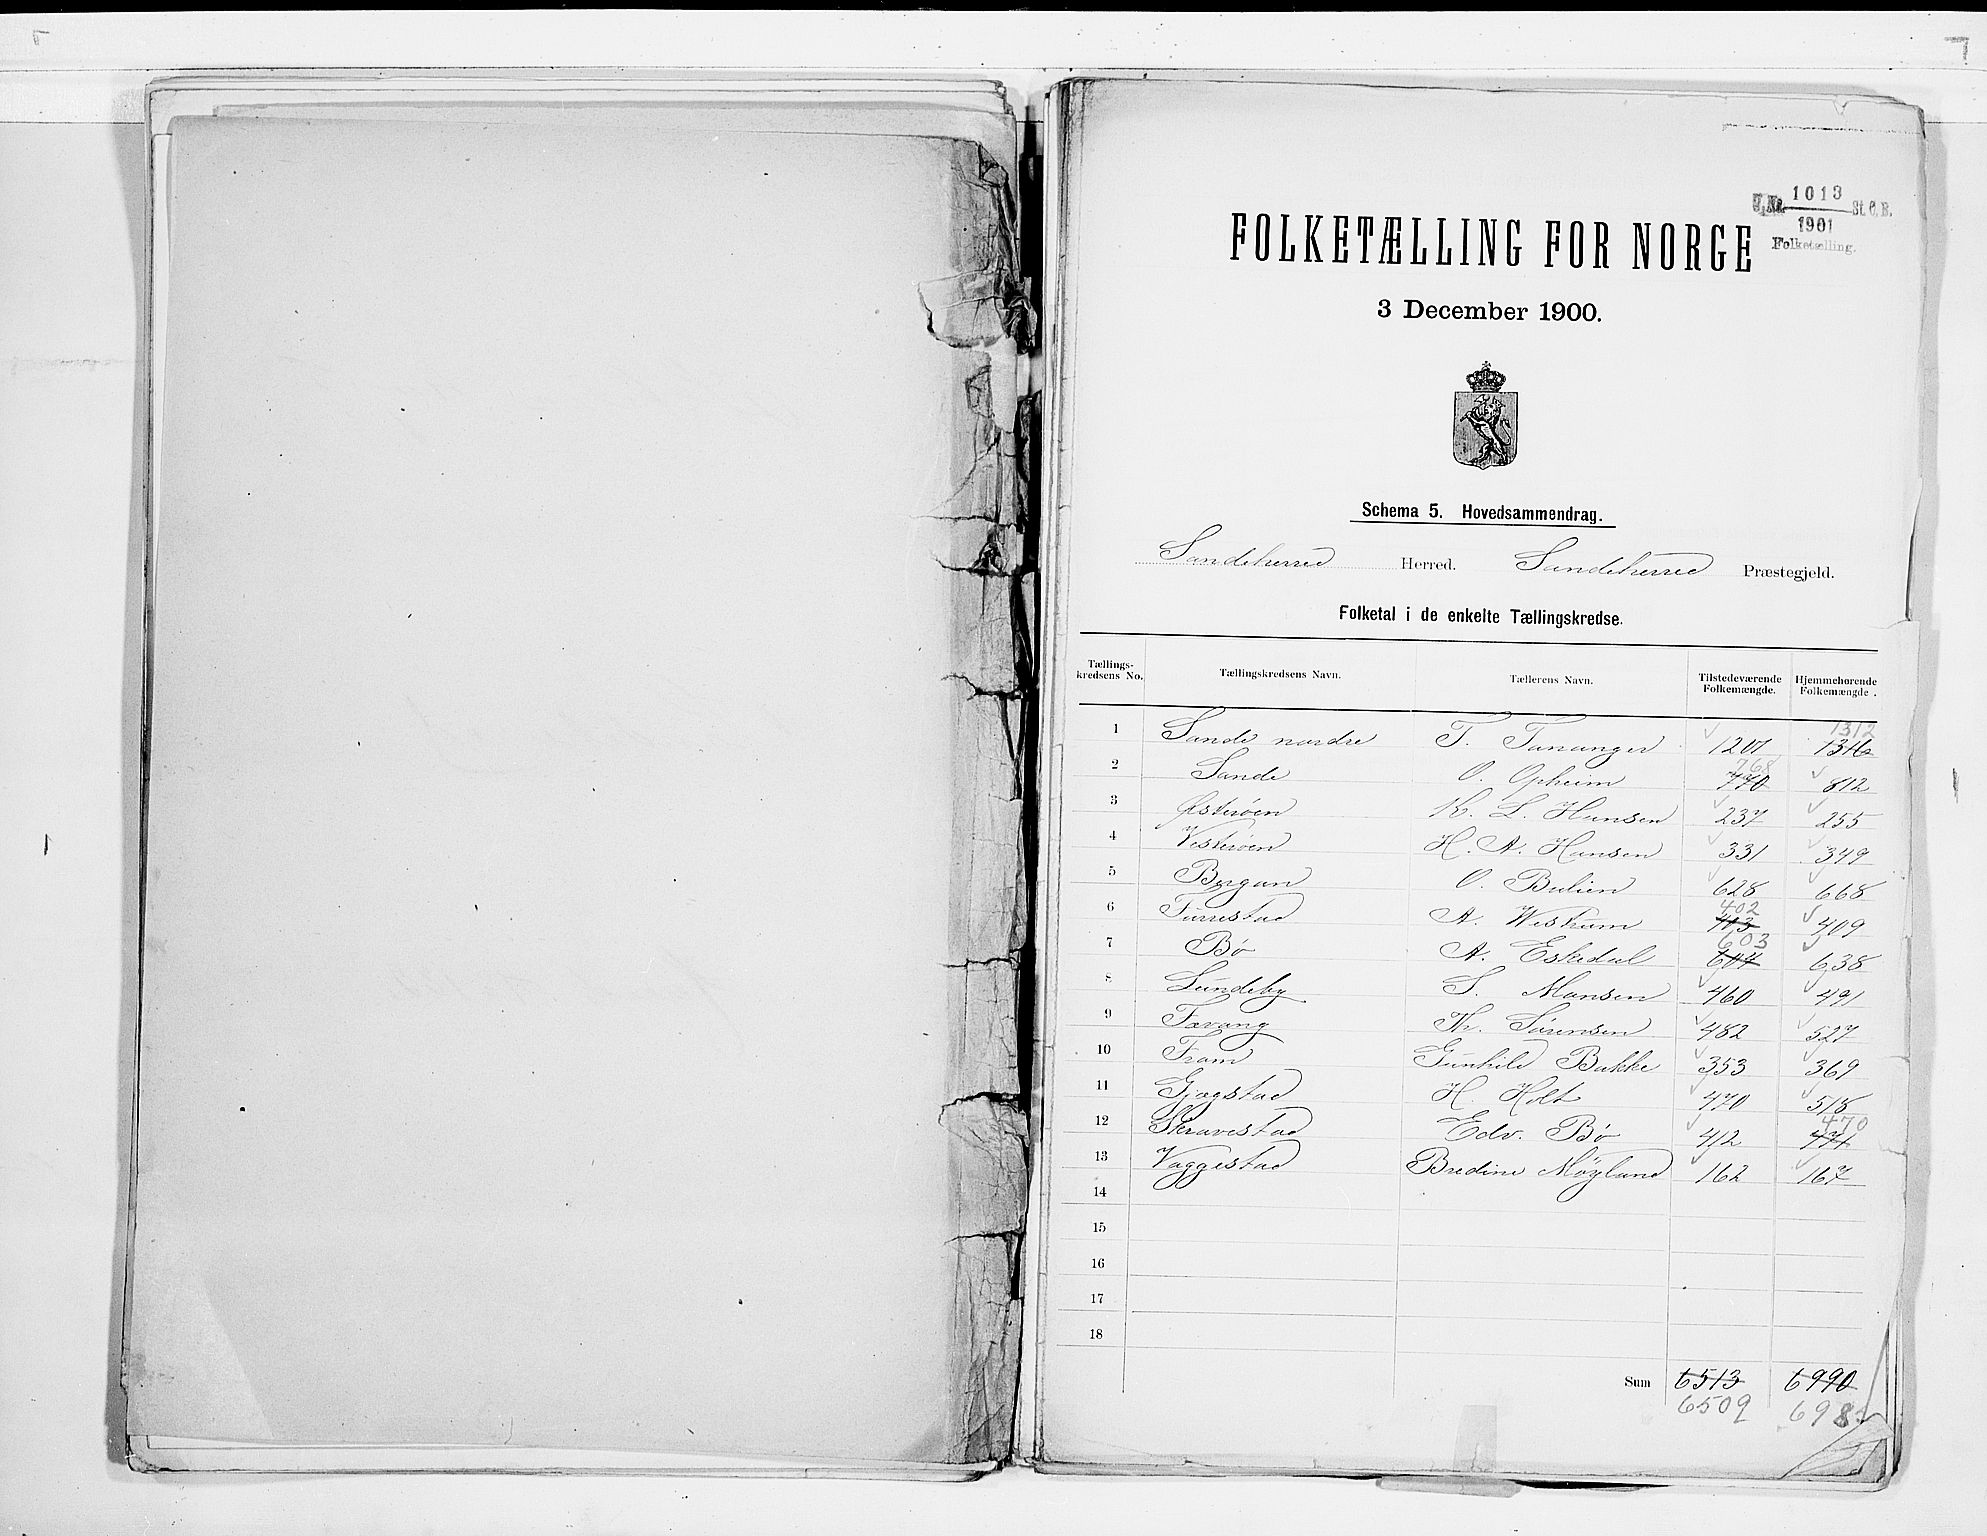 J.No. 1013 St. C. B.
1901
Folketælling.
FOLKETÆLLING FOR NORGE
3 December 1900.
Schema 5. Hovedsammendrag.
Sandeherred Herred. Sandeherred Præstegjeld.
Folketal i de enkelte Tællingskredse.
Tællings-kredsens No. Tællingskredsens Navn. Tællerens Navn. Tilstedeværende Folkemængde. Hjemmehørende Folkemængde.
1312
1 Sande nordre T. Tananger 1201 1316
768
2 Sande O. Opheim 770 812
3 Østerøen K. L. Hansen 237 255
4 Vesterøen H. A. Hansen 331 349
5 Bergan O. 628 668
402
6 A. Wistrum 403 409
603
7 Bø A. Eskedal 604 638
8 Lundeby S. Monsen 460 491
9 Fævang Th. Sørensen 482 527
10 Fram Gunhild Bakke 353 369
11 Gjøgstad H. Holt 470 518
470
12 Skravestad Edv. Bø 412 471
13 Vaggestad Bredine Møyland 162 167
14
15
16
17
18
Sum 6513 6990
6509 698